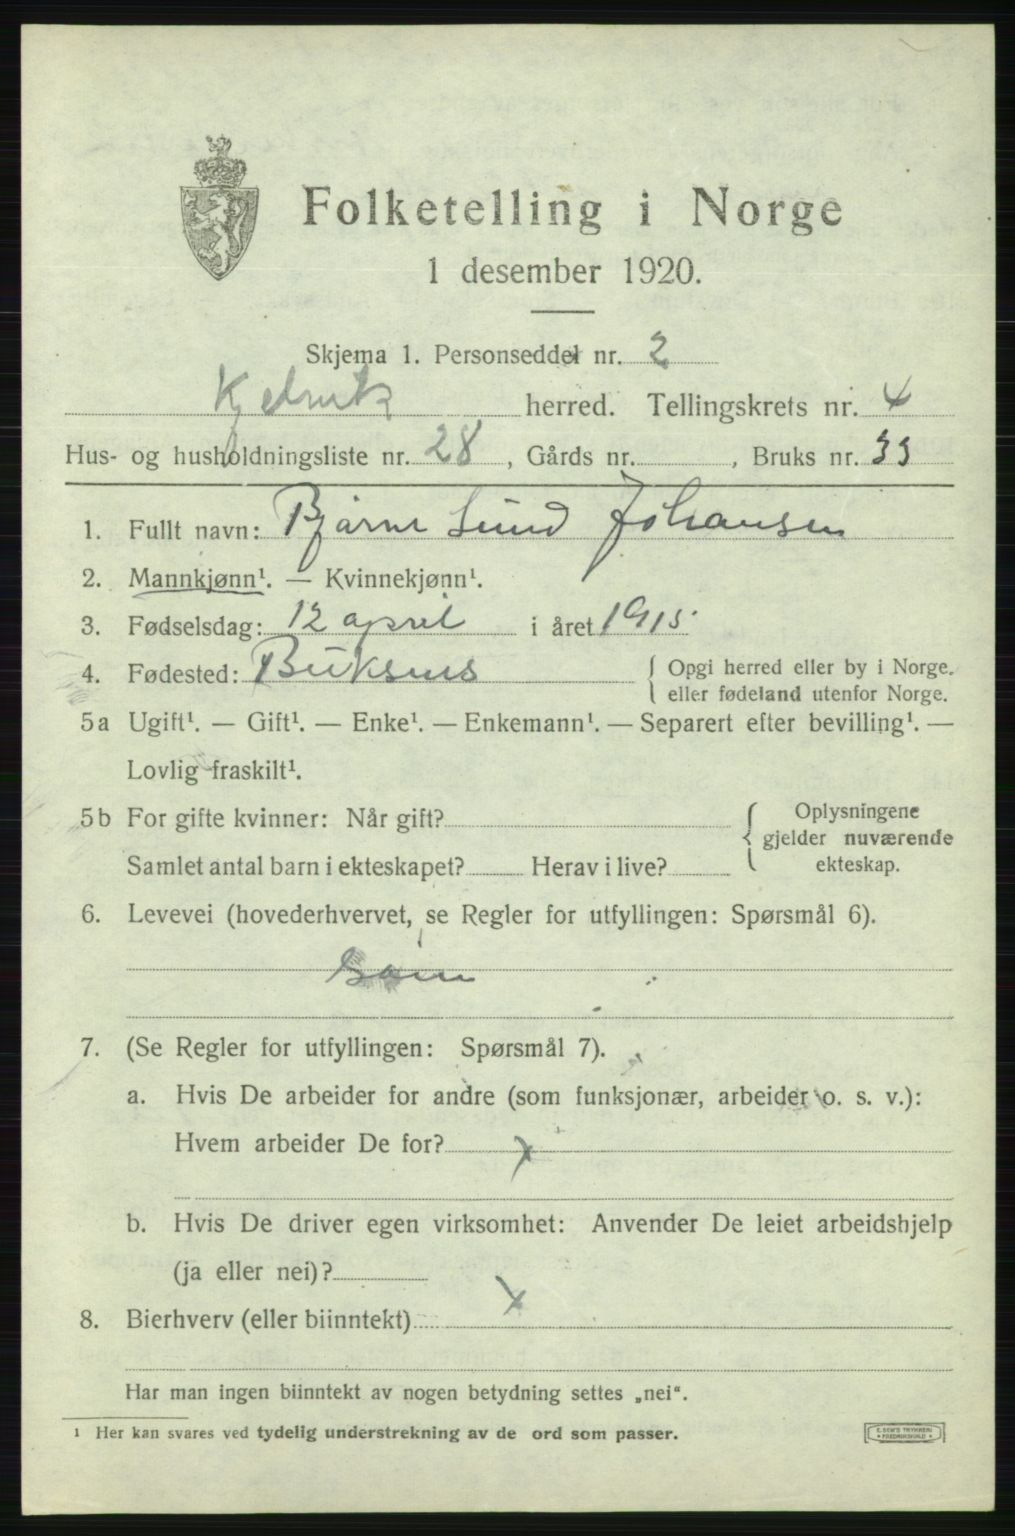 Folketelling i Norge
1 desember 1920.
Skjema 1. Personseddel nr. 2
Kjelvik herred. Tellingskrets nr. 4
Hus- og husholdningsliste nr. 28, Gårds nr. , Bruks nr. 33
1. Fullt navn: Bjarne Lund Johansen
2. Mannkjønn¹. — Kvinnekjønn¹.
3. Fødselsdag: 12 april i året 1915
4. Fødested: Buksnes { Opgi herred eller by i Norge.
eller fødeland utenfor Norge.
5a Ugift¹. — Gift¹. — Enke¹. — Enkemann¹. — Separert efter bevilling¹. —
Lovlig fraskilt¹.
5b For gifte kvinner: Når gift? { Oplysningene
gjelder nuværende
Samlet antal barn i ekteskapet? Herav i live? ekteskap.
6. Levevei (hovederhvervet, se Regler for utfyllingen: Spørsmål 6).
7. (Se Regler for utfyllingen: Spørsmål 7).
a. Hvis De arbeider for andre (som funksjonær, arbeider o. s. v.):
Hvem arbeider De for? x
b. Hvis De driver egen virksomhet: Anvender De leiet arbeidshjelp
(ja eller nei)?
8. Bierhverv (eller biinntekt) x
Har man ingen biinntekt av nogen betydning settes „nei“.
¹ Her kan svares ved tydelig understrekning av de ord som passer.